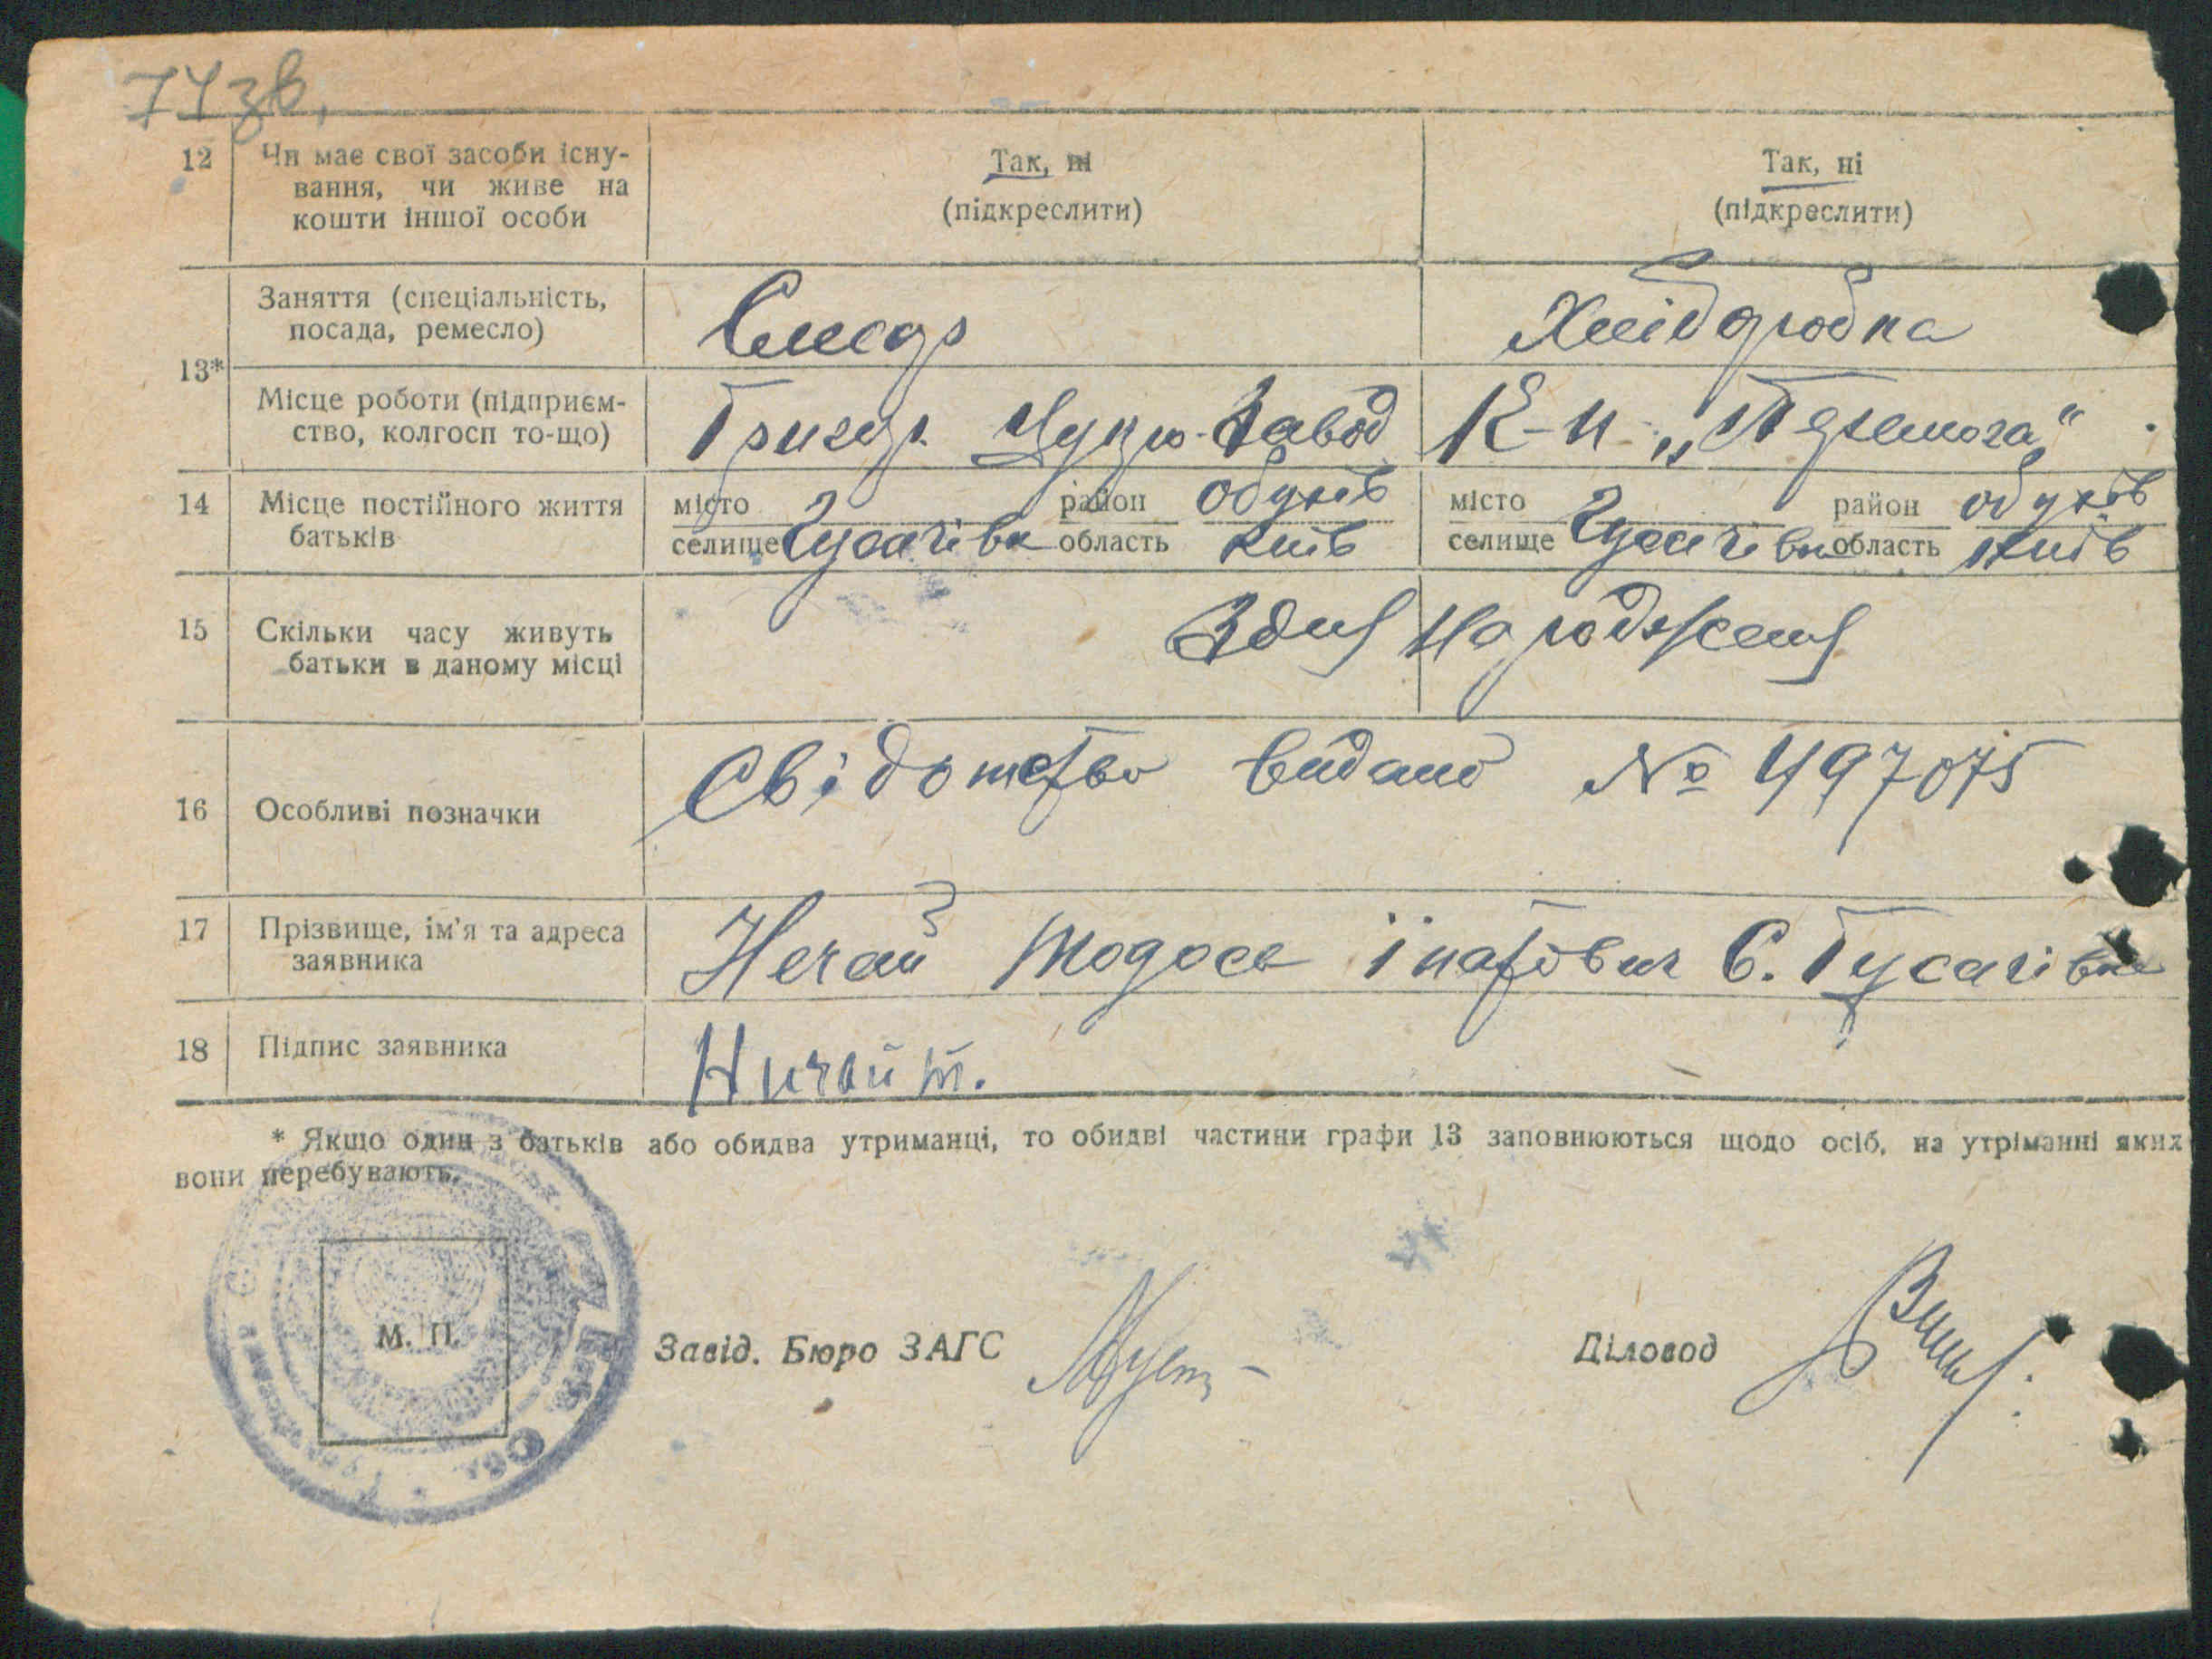 77зв.
12 Чи має свої засоби існу- Так, ні Так, ні
вання, чи живе на (підкреслити) (підкреслити)
кошти іншої особи
13* Заняття (спеціальність, Слесар Хліборобка
посада, ремесло)
Місце роботи (підприєм- Григор. Цукро-Завод К-п „Перемога"
ство, колгосп то-що)
14 Місце постійного життя місто район Обухів місто район Обухів
батьків селище Гусачівка область Київ селище Гусачівка область Київ
15 Скільки часу живуть Здня Народження
батьки в даному місці
16 Особливі позначки Свідотство видано № 497075
17 Прізвище, ім'я та адреса Нечай Тодось Іпатович С. Гусачівка
заявника
18 Підпис заявника Ничай т.
* Якщо один з батьків або обидва утриманці, то обидві частини графи 13 заповнюються щодо осіб, на утріманні яких
вони перебувають.
М. П. Завід. Бюро ЗАГС Діловод